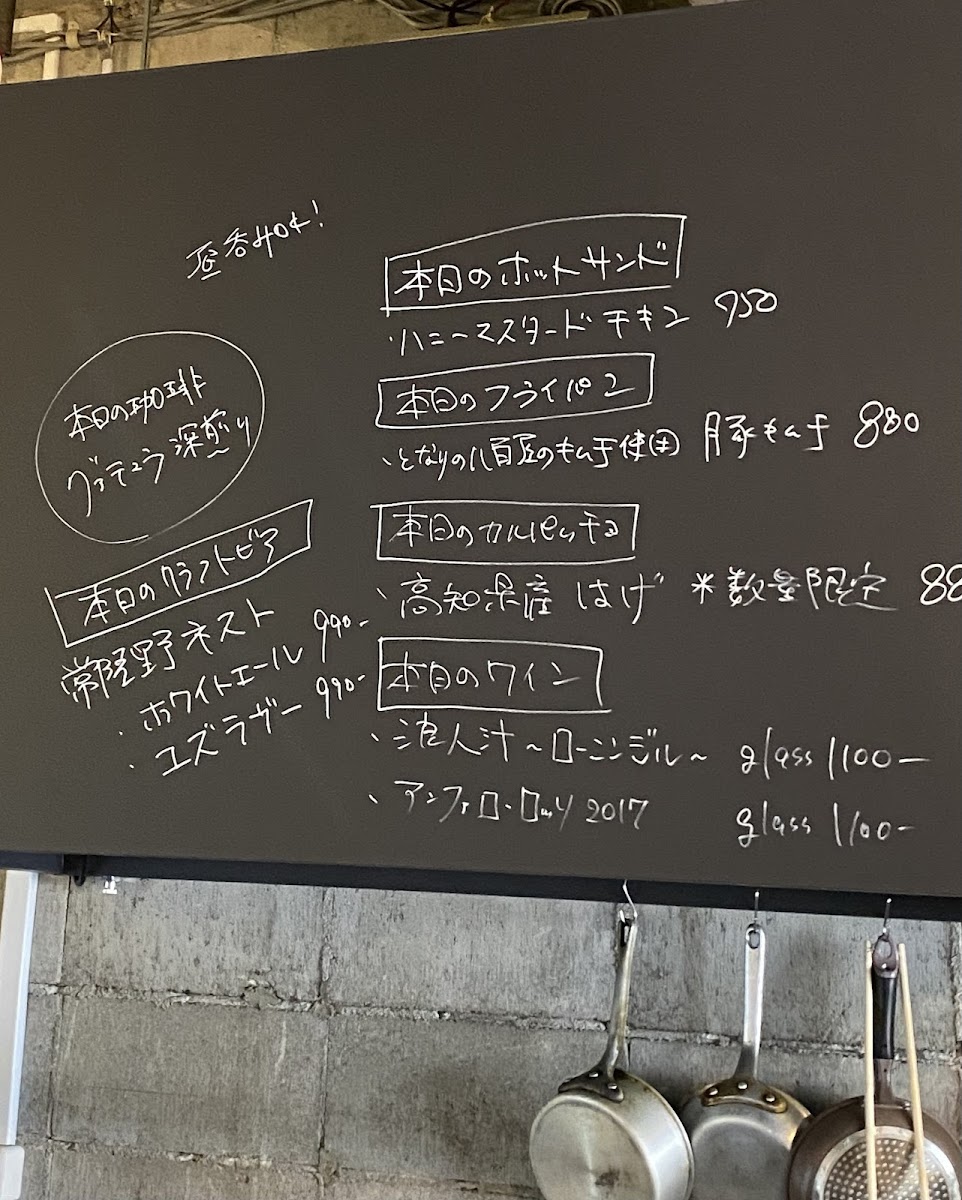 昼呑みOK!
本日の珈琲
深煎り
本日のクラフトビア
常陸野ネスト
・ホワイトエール 990-
・ユズラガー 990-
本日のホットサンド
・ハニーマスタードチキン 950
本日のフライパン
・となりの八百屋のキムチ使用 豚キムチ 880
本日のカルパッチョ
・高知県産 はげ *数量限定 88
本日のワイン
・浪人汁〜ローニンジル〜 glass 1100-
・アンファロ・ロッソ 2017 glass 1100-